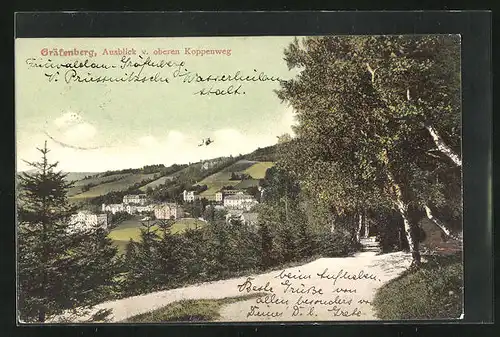 Gräfenberg, Ausblick v. oberen Koppenweg
Freiwaldau-Gräfenberg
V. Priessnitzsche Wasserheilan
stalt.
beim Aufstieg
Beste Grüße von
allen besonders v.
Deine